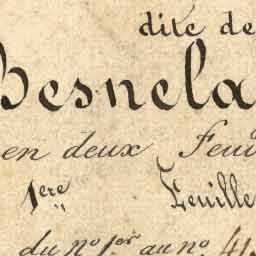 dite de
Besnela
en deux Feui
1ere Feuille
du no. 1er au no. 41